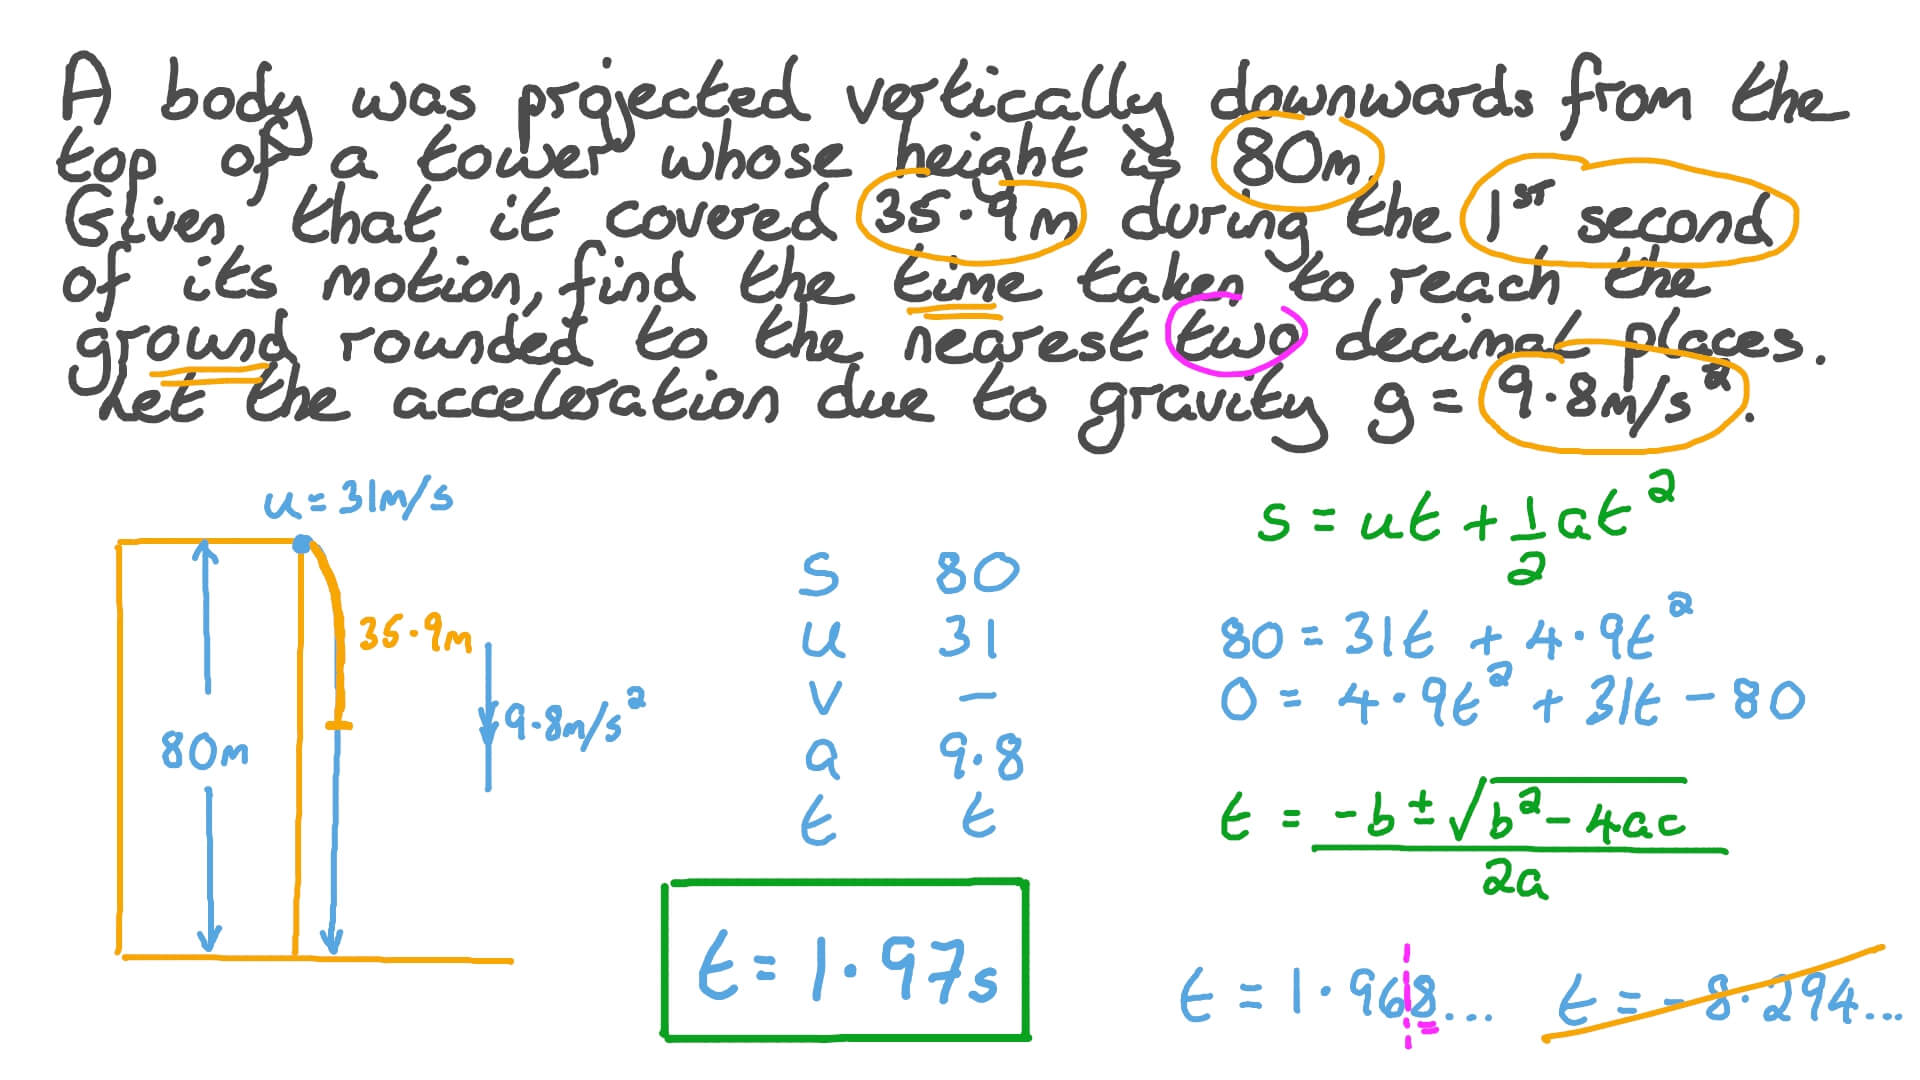 A body was projected vertically downwards from the
top of a tower whose height is 80m.
Given that it covered 35.9m during the 1ˢᵗ second
of its motion, find the time taken to reach the
ground rounded to the nearest two decimal places.
Let the acceleration due to gravity g = 9.8m/s².
u = 31m/s
35.9m
9.8m/s²
80m
s 80
u 31
v –
a 9.8
t t
t = 1.97s
s = ut + 1/2 at²
80 = 31t + 4.9t²
0 = 4.9t² + 31t - 80
t = (-b ± √(b² - 4ac))/2a
t = 1.968... t = -8.294...